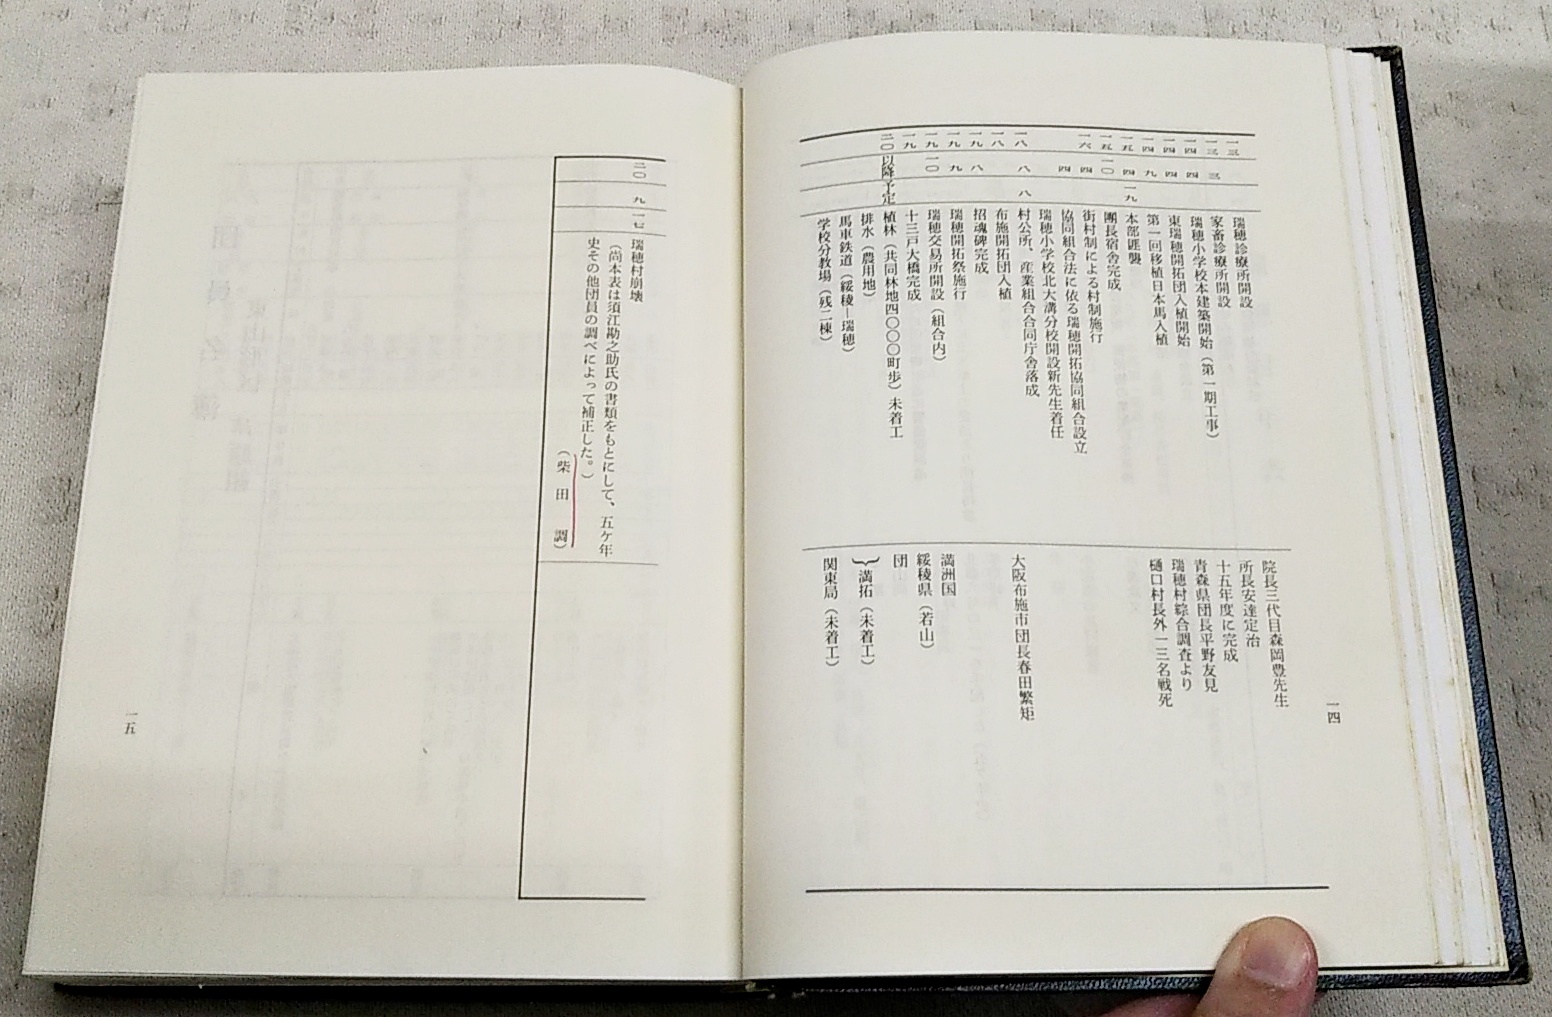 一四
一三 瑞穂診療所開設 院長三代目森岡豊先生
一三 三 家畜診療所開設 所長安達定治
一四 四 瑞穂小学校本建築開始（第一期工事） 十五年度に完成
一四 四 東瑞穂開拓団入植開始 青森県団長平野友見
一四 九 第一回移植日本馬入植 瑞穂村綜合調査より
一五 四 一九 本部匪襲 樋口村長外一三名戦死
一五 一〇 團長宿舎完成
一六 四 街村制による村制施行
四 協同組合法に依る瑞穂開拓協同組合設立
瑞穂小学校北大溝分校開設新先生着任
一八 八 八 村公所、産業組合合同庁舎落成
一八 布施開拓団入植 大阪布施市団長春田繁矩
一九 八 招魂碑完成
一九 九 瑞穂開拓祭施行 満洲国
一九 一〇 瑞穂交易所開設（組合内） 綏稜県（若山）
一九 十三戸大橋完成 団
二〇以降予定 植林（共同林地四〇〇〇町歩）未着工
排水（農用地） 満拓（未着工）
馬車鉄道（綏稜―瑞穂）
学校分教場（残二棟） 関東局（未着工）
二〇 九 一七 瑞穂村崩壊
（尚本表は須江勘之助氏の書類をもとにして、五ケ年
史その他団員の調べによって補正した。）
（柴田調）
一五